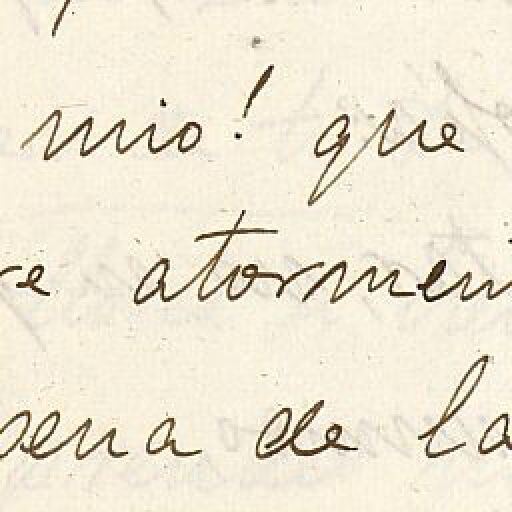 mio! que
re atormen
pena de la